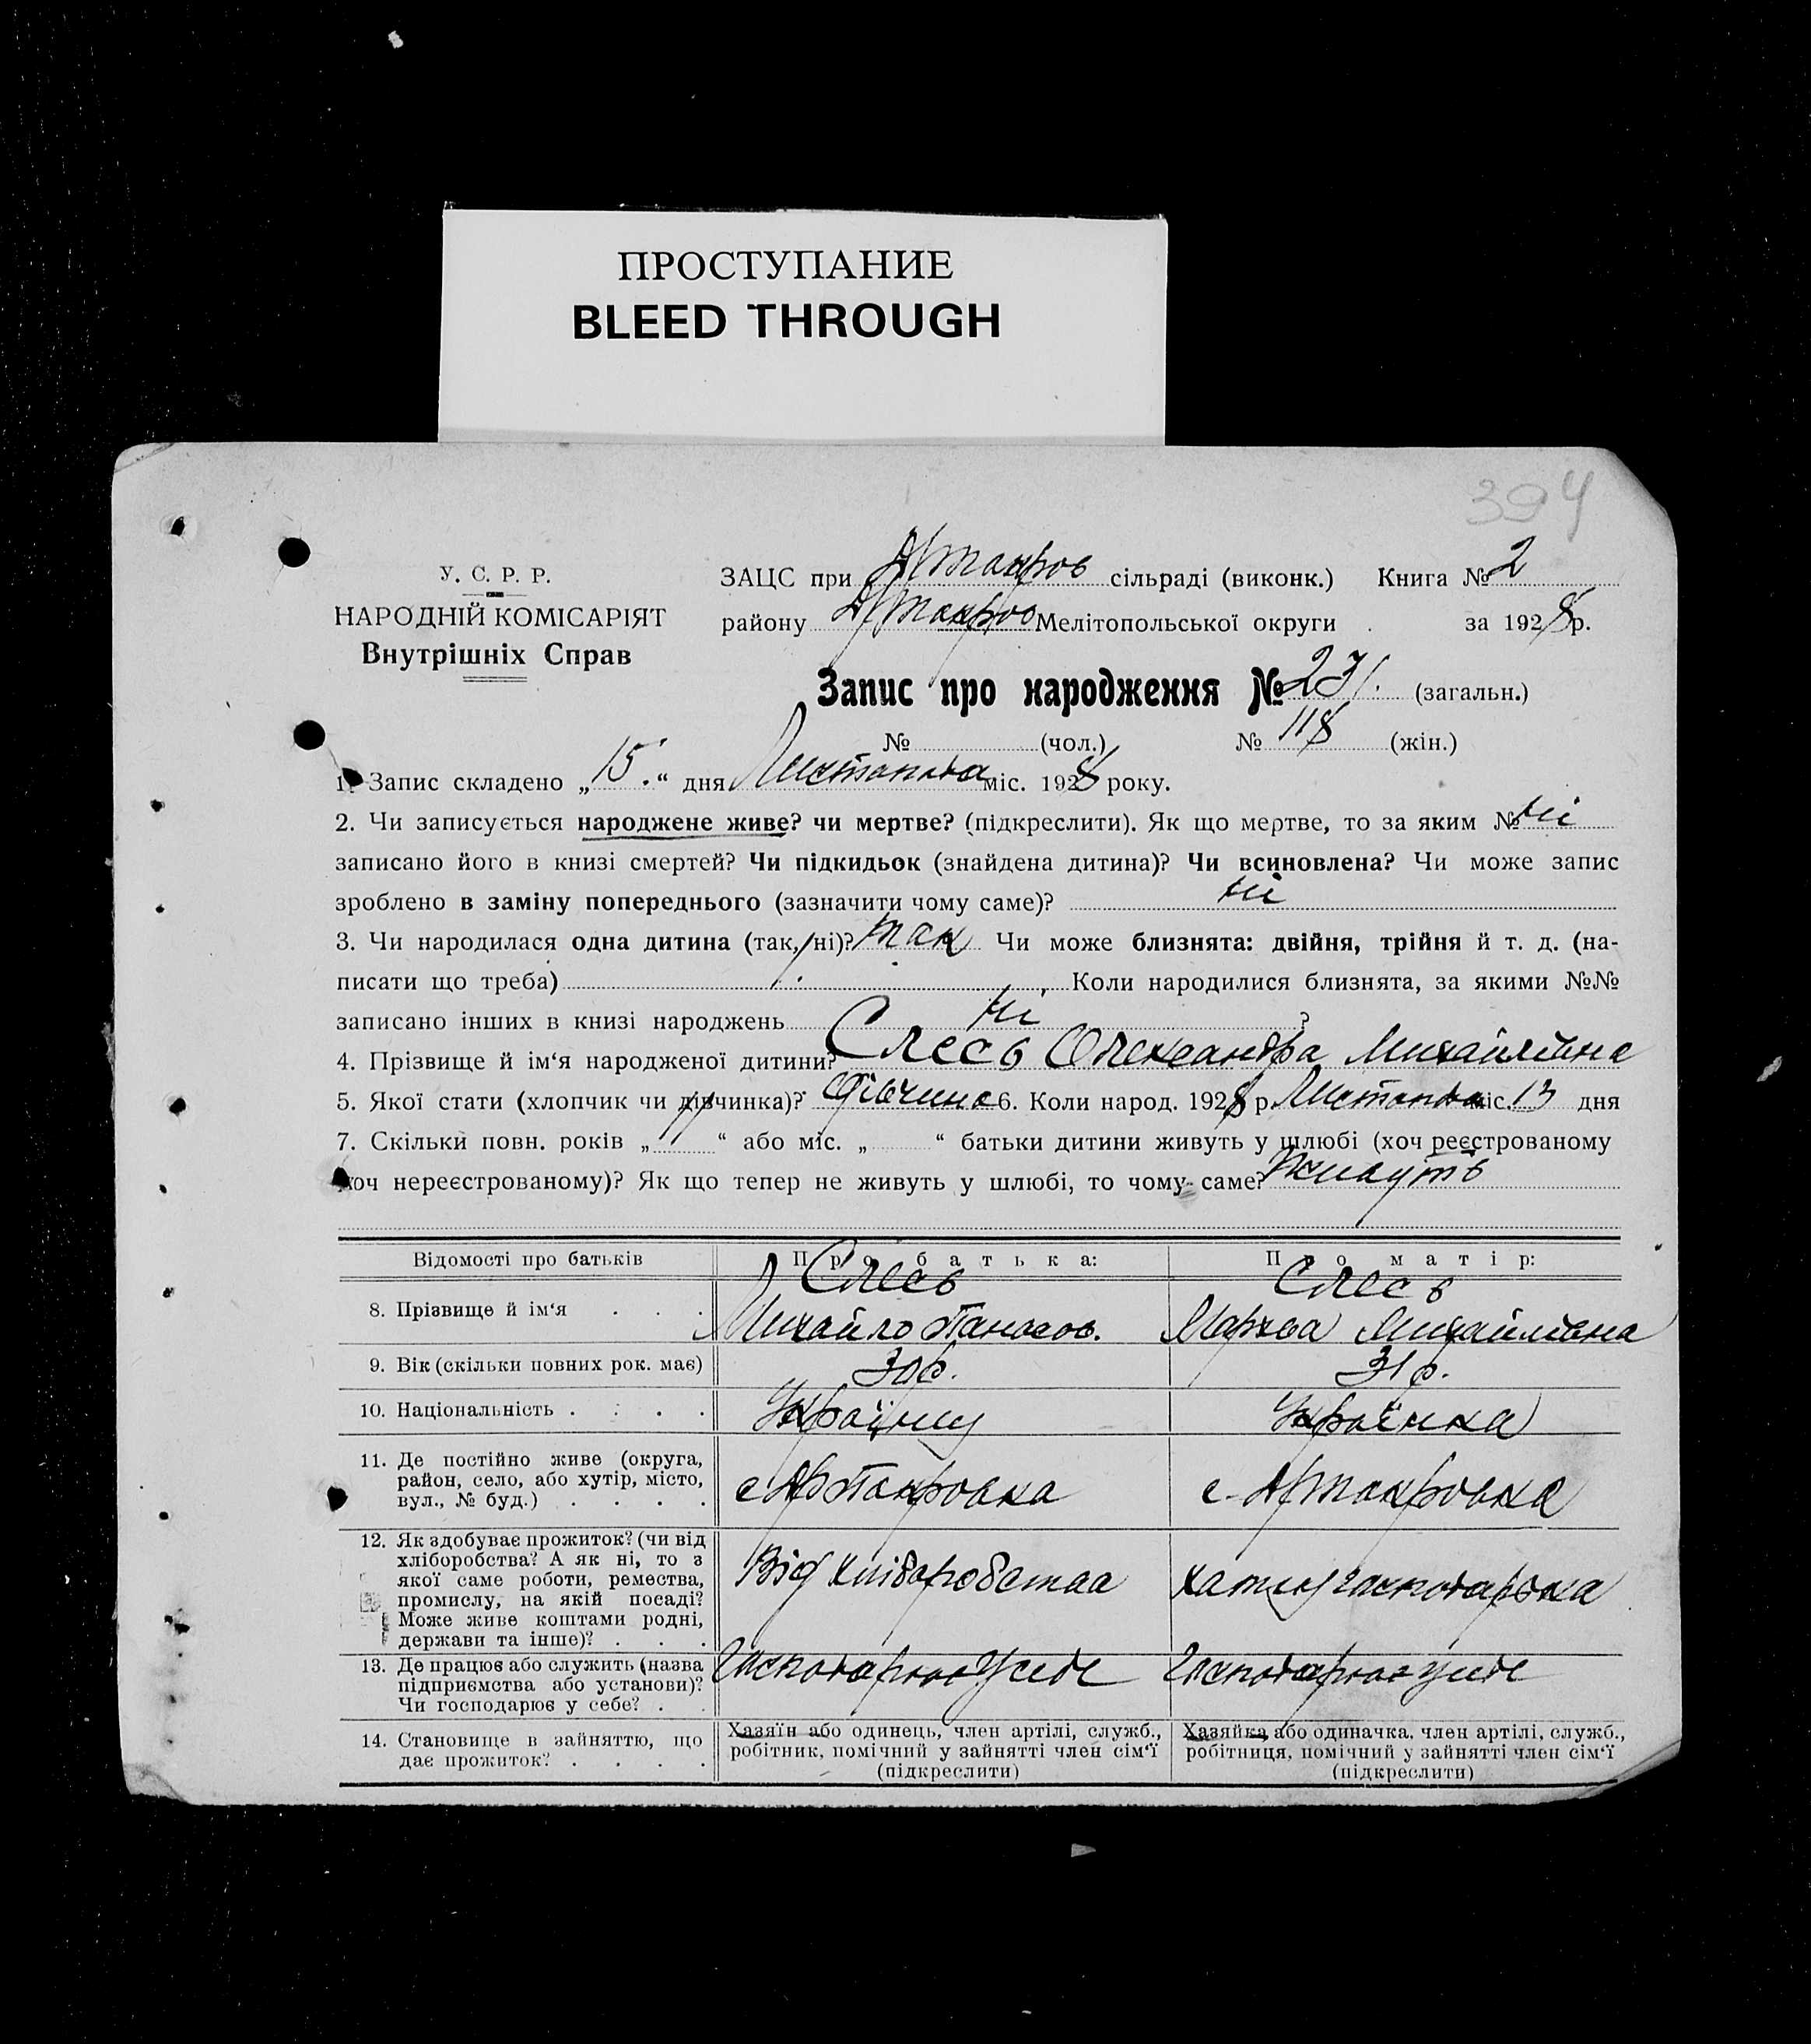 ПРОСТУПАНИЕ
BLEED THROUGH
394
У. С. Р. Р.
НАРОДНІЙ КОМІСАРІЯТ
Внутрішніх Справ
ЗАЦС при сільраді (виконк.) Книга № 2
району Мелітопольської округи за 1928 р.
Запис про народження № 231. (загальн.)
№ (чол.) № 118 (жін.)
1. Запис складено „15.“ дня Листопада міс. 1928 року.
2. Чи записується народжене живе? чи мертве? (підкреслити). Як що мертве, то за яким № ні
записано його в книзі смертей? Чи підкидьок (знайдена дитина)? Чи всиновлена? Чи може запис
зроблено в заміну попереднього (зазначити чому саме)? ні
3. Чи народилася одна дитина (так, ні)? так Чи може близнята: двійня, трійня й т. д. (на-
писати що треба) Коли народилися близнята, за якими №№
записано інших в книзі народжень ні ?
4. Прізвище й ім‘я народженої дитини? Слесь Олександра Михайлівна
5. Якої стати (хлопчик чи дівчинка)? Дівчина 6. Коли народ. 1928 р. Листопада міс. 13 дня
7. Скільки повн. років „ “ або міс. „ “ батьки дитини живуть у шлюбі (хоч реєстрованому
хоч нереєстрованому)? Як що тепер не живуть у шлюбі, то чому саме? живуть
Відомості про батьків Про батька: Про матір:
8. Прізвище й ім‘я . . . Слесь Михайло Панасов. Слесь Мархва Михайлівна
9. Вік (скільки повних рок. має) 30 р. 31 р.
10. Національність . . . . Українец Українка
11. Де постійно живе (округа,
район, село, або хутір, місто,
вул., № буд.) . . . .
12. Як здобуває прожиток? (чи від
хліборобства? А як ні, то з
якої саме роботи, ремества,
промислу, на якій посаді?
Може живе коштами родні,
держави та інше)? . . .
Від хліборобства
13. Де працює або служить (назва
підприємства або установи)?
Чи господарює у себе? . .
14. Становище в зайняттю, що
дає прожиток? . . . .
Хазяїн або одинець, член артілі, служб.,
робітник, помічний у зайнятті член сім‘ї
(підкреслити)
Хазяйка або одиначка, член артілі, служб.,
робітниця, помічний у зайнятті член сім‘ї
(підкреслити)